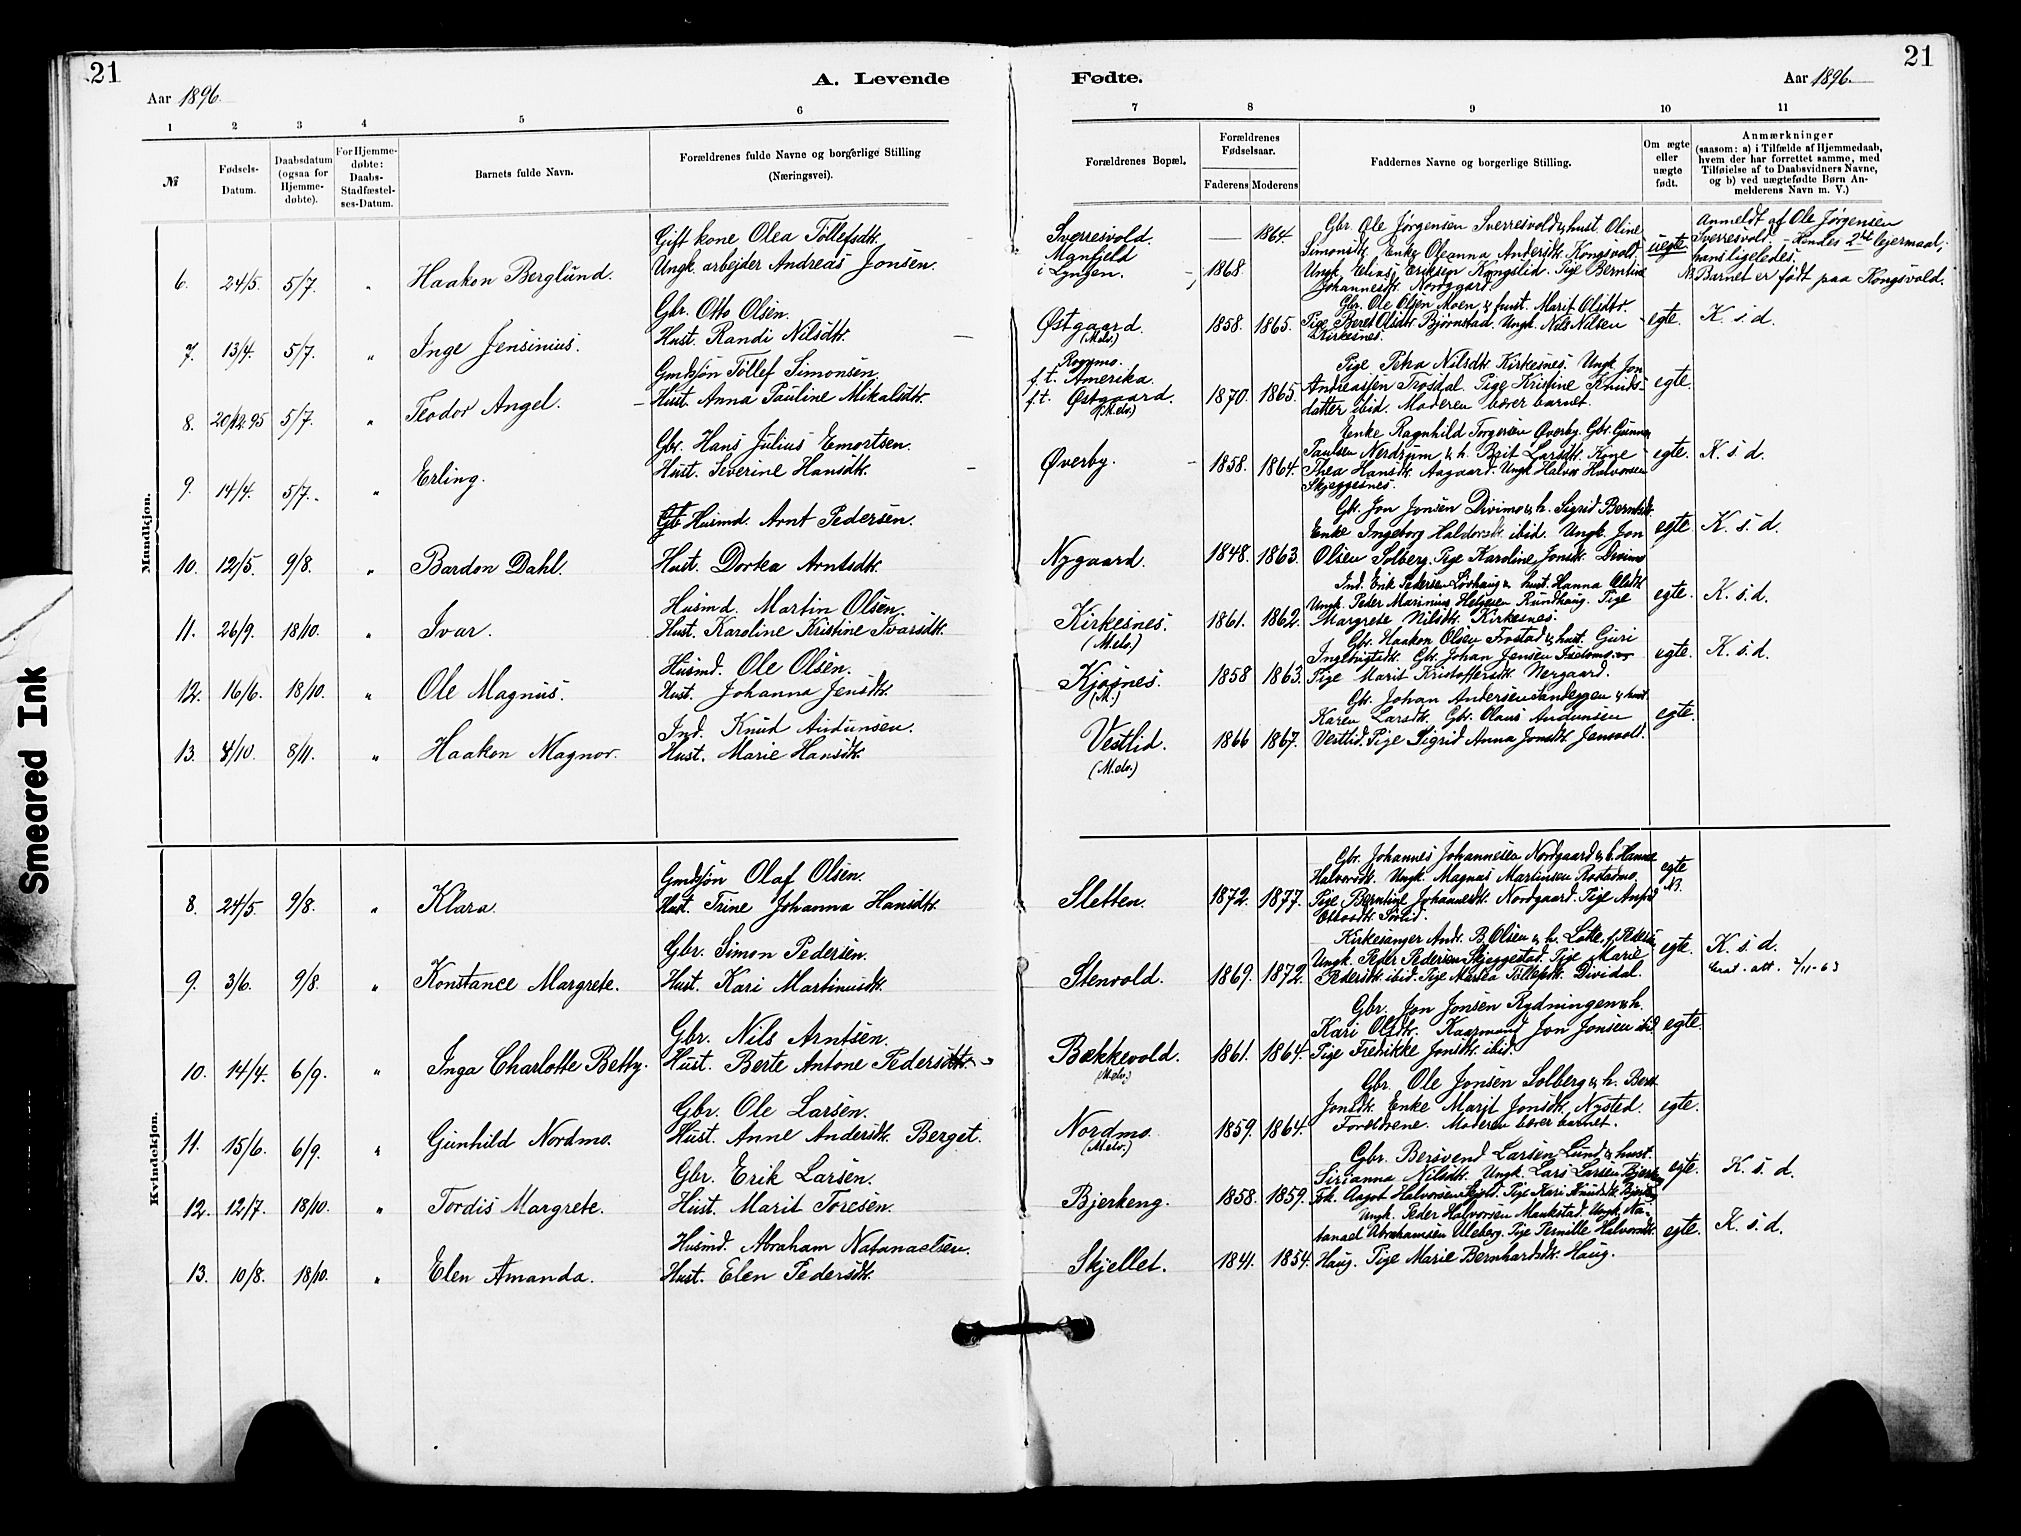 21
Aar 1896.
A. Levende
1 2 3 4 5 6
№
Fødsels-
Datum.
Daabsdatum
(ogsaa for
Hjemme-
døbte).
For Hjemme-
døbte:
Daabs-
Stadfæstel-
ses-Datum.
Barnets fulde Navn.
Forældrenes fulde Navne og borgerlige Stilling
(Næringsvei).
Mandkjøn.
Gift kone Olea Tollefsdtr.
6. 24/5. 5/7. " Haakon Berglund. Ungk. arbejder Andreas Jonsen.
Gbr. Otto Olsen.
7. 13/4. 5/7. " Inge Jensinius. Hust. Randi Nilsdtr.
Gmdssøn Tollef Simonsen.
8. 20/12 95 5/7. " Teodor Angel. Hust. Anna Pauline Mikalsdtr.
Gbr. Hans Julius Emortsen.
9. 14/4. 5/7. " Erling. Hust. Severine Hansdtr.
Husmd. Arnt Pedersen.
10. 12/5. 9/8. " Bardon Dahl. Hust. Dorka Arntsdtr.
Husmd. Martin Olsen.
11. 26/9. 18/10. " Ivar. Hust. Karoline Kristine Ivarsdtr.
Husmd. Ole Olsen.
12. 16/6. 18/10. " Ole Magnus. Hust. Johanna Jensdtr.
Ind. Knud Audunsen.
13. 4/10. 8/11. " Haakon Magnor. Hust. Marie Hansdtr.
Kvindekjøn.
Gmdssøn Olaf Olsen.
8. 24/5. 9/8. " Klara. Hust. Trine Johanna Hansdtr.
Gbr. Simon Pedersen.
9. 3/6. 9/8. " Konstance Margrete. Hust. Kari Martinusdtr.
Gbr. Nils Arntsen.
10. 14/4. 6/9. " Inga Charlotte Betty. Hust. Berte Antone Pedersdtr.
Gbr. Ole Larsen.
11. 15/6. 6/9. " Gunhild Nordmo. Hust. Anne Andersdtr. Berget.
Gbr. Erik Larsen.
12. 12/7. 18/10. " Tordis Margrete. Hust. Marit Toresen.
Husmd. Abraham Natanaelsen.
13. 10/8. 18/10. " Elen Amanda. Hust. Elen Pedersdtr.
21
Fødte.
Aar 1896.
7 8 9 10 11
Forældrenes Bopæl.
Forældrenes
Fødselsaar.
Faderens Moderens
Faddernes Navne og borgerlige Stilling.
Om ægte
eller
uægte
født.
Anmærkninger
(saasom: a) i Tilfælde af Hjemmedaab,
hvem der har forrettet samme, med
Tilføielse af to Daabsvidners Navne,
og b) ved uægtefødte Børn An-
melderens Navn m. V.)
Sverresvold. — 1864. Gbr. Ole Jørgensen Sverresvold & hust. Oline uegte. Anmeldt af Ole Jørgensen
Simonsdtr. Enke Oleanna Andersdtr. Kongsvold. Sverresvold. – Hendes 2det lejermaal;
i Lyngen. 1868. Ungk. Elias Eriksen Kongslid. Pige Berntine hans ligeledes.
Johannesdtr. Nordgaard. NB Barnet er født paa Kongsvold.
Gbr. Ole Olsen Moen & hust. Marit Olsdtr.
Østgaard. 1858. 1865. Pige Beret Olsdtr. Bjørnstad. Ungk. Nils Nilsen egte. K. s. d.
(M.elv.) Kirkesnes.
Pige Petra Nilsdtr. Kirkesnes. Ungk. Jon
f. t. Amerika. Andreassen Trosdal. Pige Kristine Knuds- egte.
f. t. Østgaard. 1870. 1865. datter ibid. Moderen bærer barnet.
(M.elv.)
Enke Ragnhild Torgersen Øverby. Gbr. Gunnar
Øverby. 1858. 1864. Paulsen Nerdrum & h. Brit Larsdtr. Kone egte. K. s. d.
Thea Hansdtr. Aagaard. Ungk. Halvor Halvorsen
Skjeggesnes.
Gbr. Jon Jonsen Divimo & h. Sigrid Bernhdtr.
Enke Ingeborg Haldorsdtr. ibid. Ungk. Jon egte. K. s. d.
Nygaard. 1848. 1863. Olsen Solberg. Pige Karoline Jonsdtr. Divimo
Ind. Erik Pedersen Løvhaug & hust. Hanna Olsdtr.
Kirkesnes. 1861. 1862. Ungk. Peder Marinius Helgesen Rundhaug. Pige egte. K. s. d.
(M.elv.) Margrete Nilsdtr. Kirkesnes.
Gbr. Haakon Olsen Frostad & hust. Guri
Ingebrigtsdtr. Gbr. Johan Jensen egte. K. s. d.
Kjosnes. 1858 1863. Pige Marit Kristoffersdtr. Nergaard.
(M.)
Gbr. Johan Andersen Sandeggen & hust.
Karen Larsdtr. Gbr. Olaus Audunsen egte.
Vestlid. 1866 1867. Vestlid. Pige Sigrid Anna Jonsdtr. Jensvold.
(M.elv.)
Gbr. Johannes Johannesen Nordgaard & h. Hanna egte
Halvorsdtr. Ungk. Magnus Martinsen Rostadmo. NB.
Sletten. 1872. 1877. Pige Berntine Johannesdtr. Nordgaard. Pige
Ottosdtr. Sørlid.
Kirkesanger Andr. B. Olsen & h. Lotte f. Pedersen
Ungk. Peder Pedersen Skjeggestad. Pige Marie egte. K. s. d.
Stenvold. 1869. 1872. Pedersdtr. ibid. Pige Marta Tollefsdtr. Dividal. att. 2/11-63
Gbr. Jon Jonsen Rydningen & h.
Kari Olsdtr. Jon Jonsen ibid. egte.
Bækkevold. 1861. 1864. Pige Fredrikke Jonsdtr. ibid.
(M.elv.)
Gbr. Ole Jonsen Solberg & h. Beret
Jonsdtr. Enke Marit Jonsdtr. Nysted. egte.
Nordmo. 1859. 1864. Foreldrene. Moderen bærer barnet.
(M.elv.)
Gbr. Bersvend Larsen Lund & hust.
Sirianna Nilsdtr. Ungk. Lars Larsen egte. K. s. d.
Bjerkeng. 1858. 1859. Frk. Aagot Halvorsen Skjold. Pige Kari Knudsdtr.
Ungk. Peder Halvorsen Maukstad. Ungk. Na-
tanael Abrahamsen Uleberg. Pige Pernille Halvorsdtr. egte. K. s. d.
Skjellet. 1841. 1854. Haug. Pige Marie Bernhardsdtr. Haug.
Smeared Ink